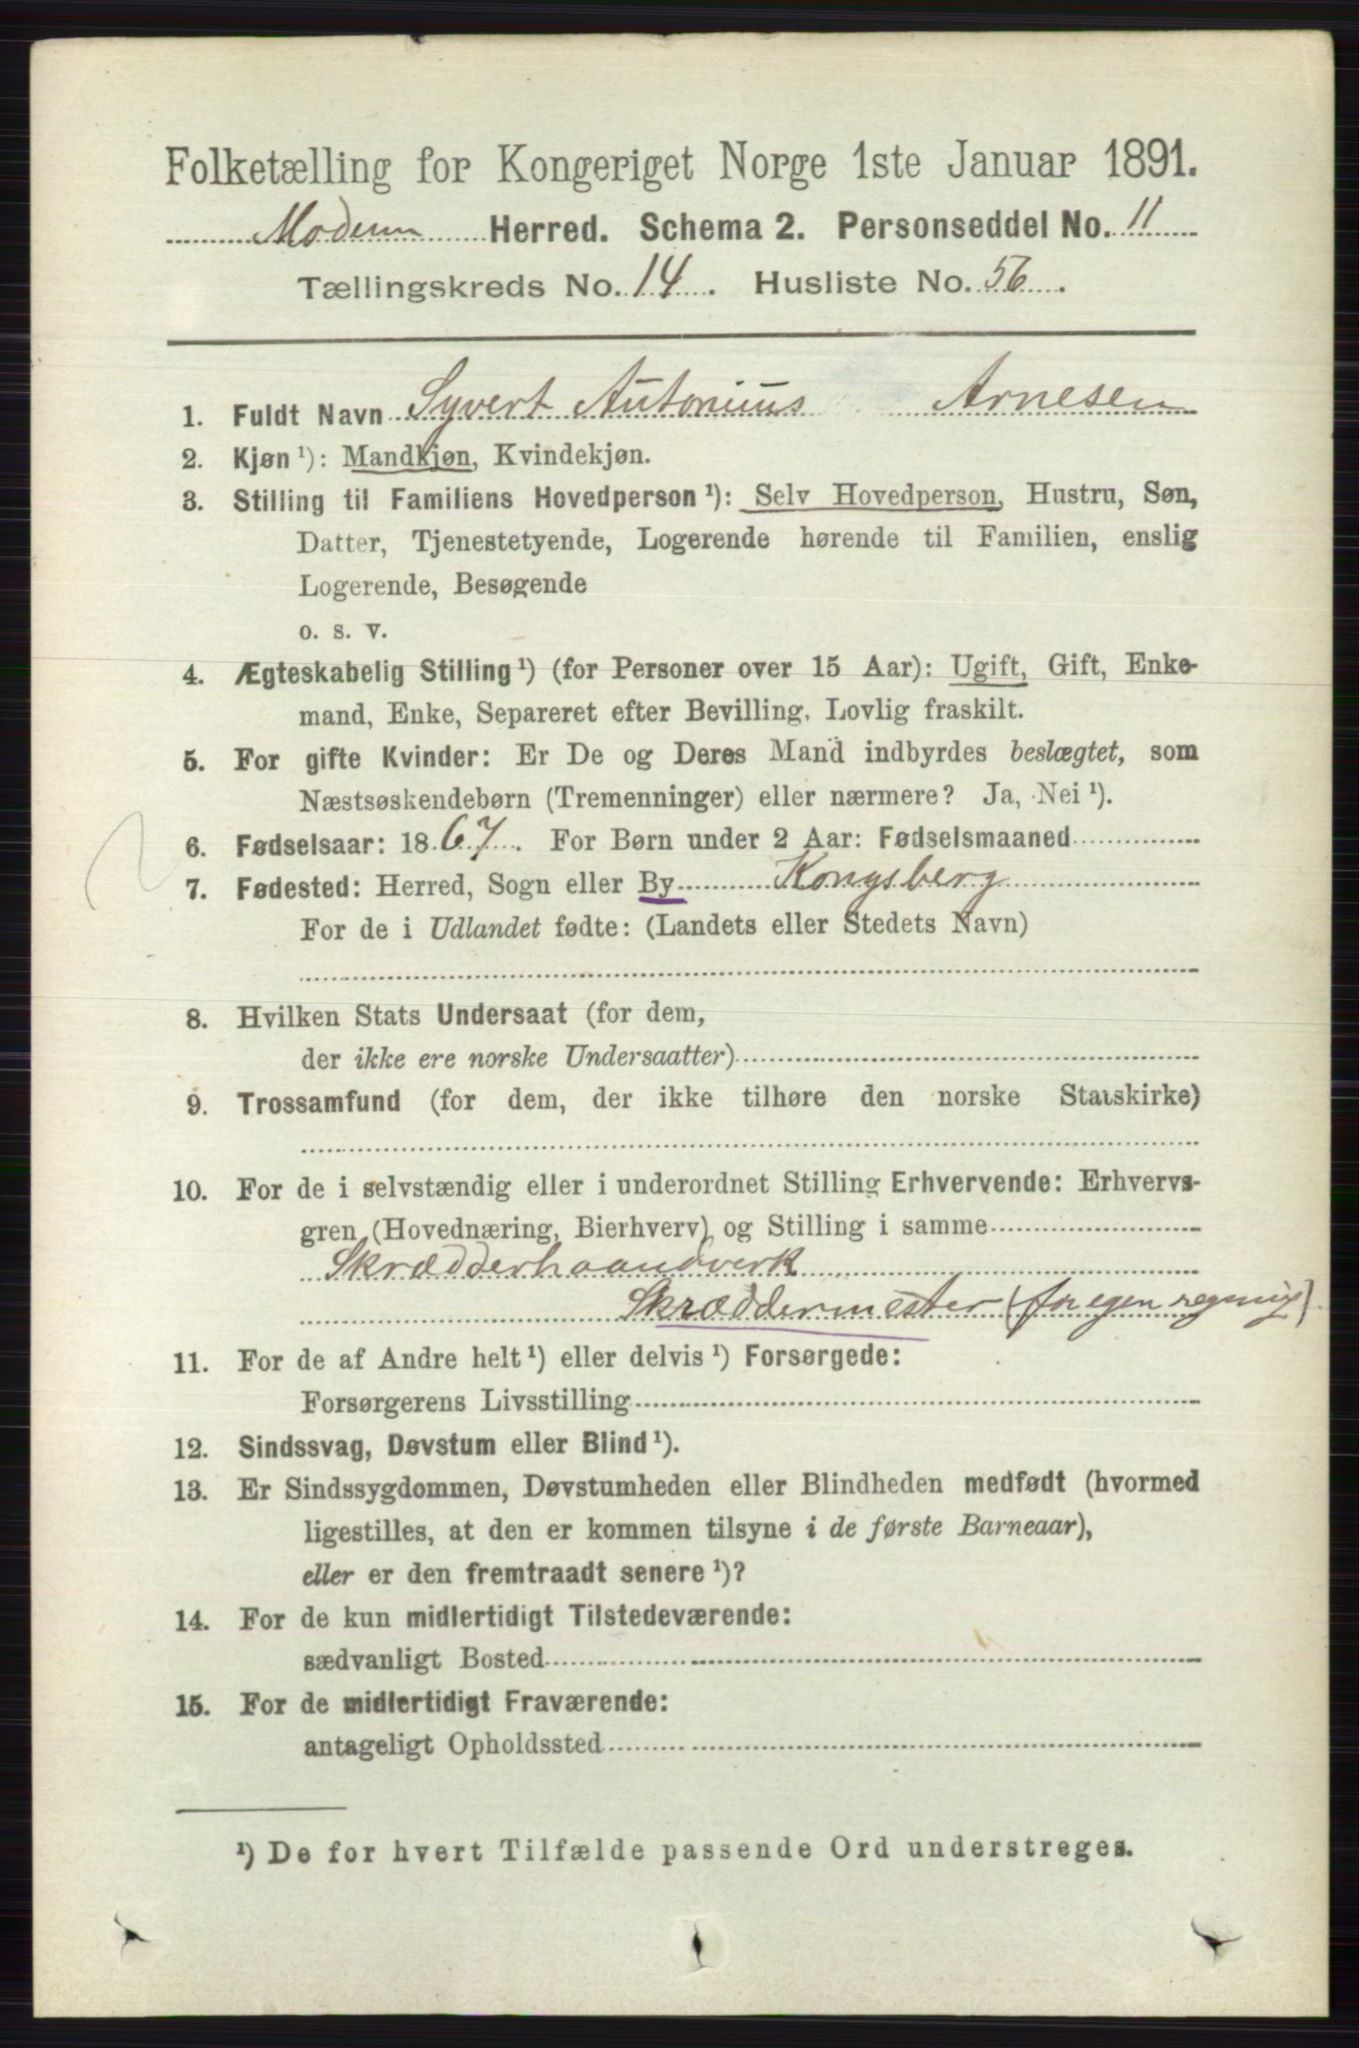 Folketælling for Kongeriget Norge 1ste Januar 1891.
Modum Herred. Schema 2. Personseddel No. 11
Tællingskreds No. 14. Husliste No. 56.
1. Fuldt Navn Syvert Antonius Arnesen
2. Kjøn ¹): Mandkjøn, Kvindekjøn.
3. Stilling til Familiens Hovedperson ¹): Selv Hovedperson, Hustru, Søn,
Datter, Tjenestetyende, Logerende hørende til Familien, enslig
Logerende, Besøgende
o. s. v.
4. Ægteskabelig Stilling ¹) (for Personer over 15 Aar): Ugift, Gift, Enke-
mand, Enke, Separeret efter Bevilling, Lovlig fraskilt.
5. For gifte Kvinder: Er De og Deres Mand indbyrdes beslægtet, som
Næstsøskendebørn (Tremenninger) eller nærmere? Ja, Nei ¹).
6. Fødselsaar: 1867. For Børn under 2 Aar: Fødselsmaaned
7. Fødested: Herred, Sogn eller By Kongsberg
For de i Udlandet fødte: (Landets eller Stedets Navn)
8. Hvilken Stats Undersaat (for dem,
der ikke ere norske Undersaatter)
9. Trossamfund (for dem, der ikke tilhøre den norske Statskirke)
10. For de i selvstændig eller i underordnet Stilling Erhvervende: Erhvervs-
gren (Hovednæring, Bierhverv) og Stilling i samme
Skrædderhaandverk
Skræddermester (for egen regning)
11. For de af Andre helt ¹) eller delvis ¹) Forsørgede:
Forsørgerens Livsstilling
12. Sindssvag, Døvstum eller Blind ¹).
13. Er Sindssygdommen, Døvstumheden eller Blindheden medfødt (hvormed
ligestilles, at den er kommen tilsyne i de første Barneaar),
eller er den fremtraadt senere ¹)?
14. For de kun midlertidigt Tilstedeværende:
sædvanligt Bosted
15. For de midlertidigt Fraværende:
antageligt Opholdssted
¹) De for hvert Tilfælde passende Ord understreges.